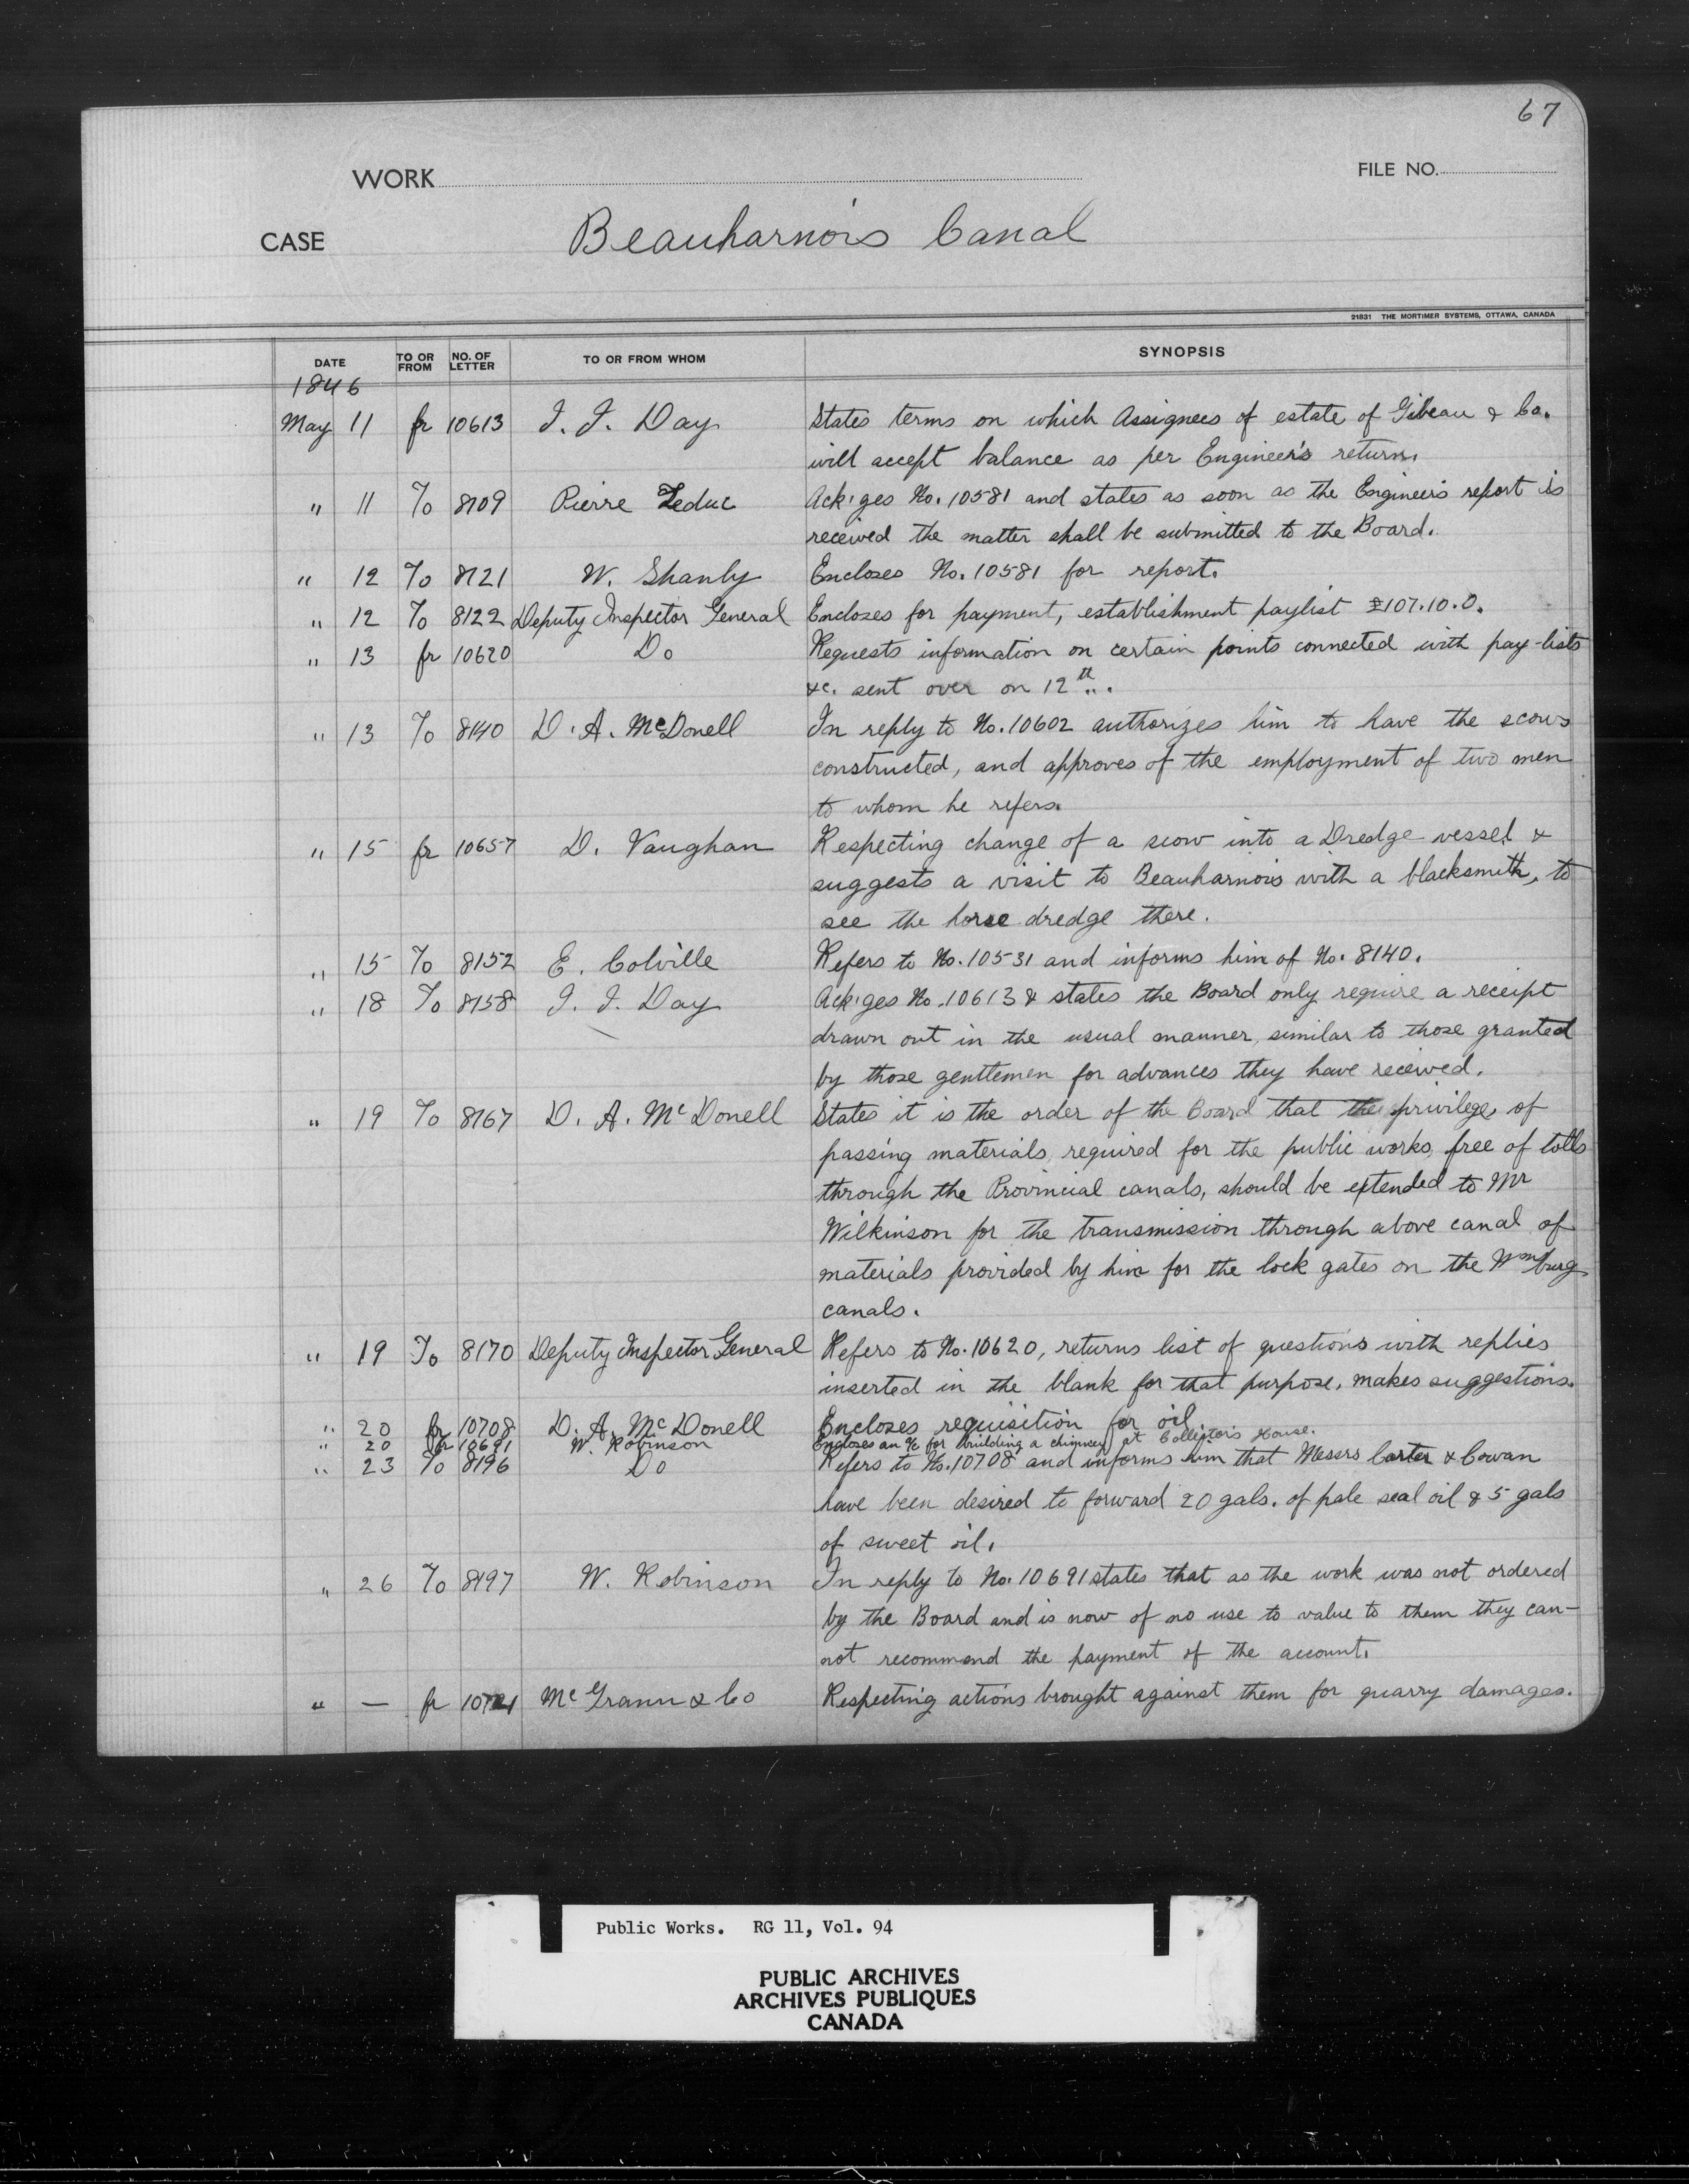 67
WORK
FILE NO.
CASE Beauharnois Canal
21831 THE MORTIMER SYSTEMS, OTTAWA, CANADA
DATE TO OR FROM NO. OF LETTER TO OR FROM WHOM SYNOPSIS
1846
May 11 fr 10613 I. I. Day States terms on which Assignees of estate of Gibeau & Co.
will accept balance as per Engineer's return.
" 11 To 8109 Pierre Leduc Ack'ges No. 10581 and states as soon as the Engineer's report is
received the matter shall be submitted to the Board.
" 12 To 8121 W. Shanly Encloses No. 10581 for report.
" 12 To 8122 Deputy Inspector General Encloses for payment, establishment paylist £107.10.0.
" 13 fr 10620 Do Requests information on certain points connected with pay-lists
&c. sent over on 12th.
" 13 To 8140 D. A. McDonell In reply to No. 10602 authorizes him to have the scows
constructed, and approves of the employment of two men
to whom he refers.
" 15 fr 10657 D. Vaughan Respecting change of a scow into a Dredge vessel &
suggests a visit to Beauharnois with a blacksmith, to
see the horse dredge there.
" 15 To 8152 E. Colville Refers to No. 10531 and informs him of No. 8140.
" 18 To 8158 I. I. Day Ack'ges No. 10613 & states the Board only require a receipt
drawn out in the usual manner, similar to those granted
by those gentlemen for advances they have received.
" 19 To 8167 D. A. McDonell States it is the order of the Board that the privilege, of
passing materials, required for the public works, free of tolls
through the Provincial canals, should be extended to Mr
Wilkinson for the transmission through above canal of
materials provided by him for the lock gates on the Wmburg
canals.
" 19 To 8170 Deputy Inspector General Refers to No. 10620, returns list of questions with replies
inserted in the blank for that purpose, makes suggestions.
" 20 fr 10708 D. A. McDonell Encloses requisition for oil
" 20 fr 10691 W. Robinson Encloses an a/c for building a chimney at Collector's House.
" 23 To 8196 Do Refers to No. 10708 and informs him that Messrs Carter & Cowan
have been desired to forward 20 gals. of pale seal oil & 5 gals
of sweet oil.
" 26 To 8197 W. Robinson In reply to No. 10691 states that as the work was not ordered
by the Board and is now of no use to value to them they can-
not recommend the payment of the account.
" — fr McGrann & Co Respecting actions brought against them for quarry damages.
Public Works. RG 11, Vol. 94
PUBLIC ARCHIVES
ARCHIVES PUBLIQUES
CANADA